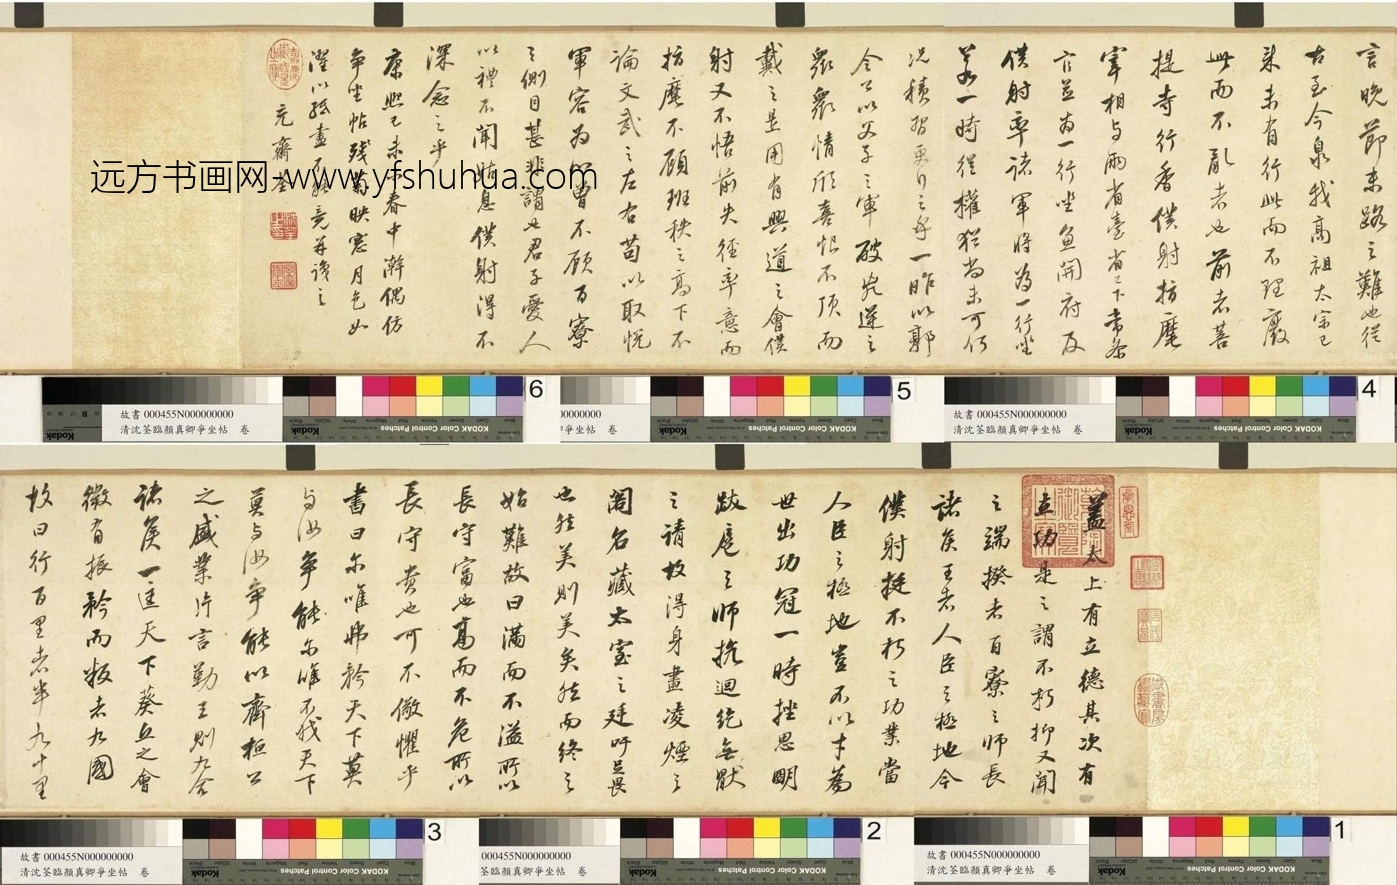 蓋太上有立德其次有
立功是之謂不朽抑又聞
之端揆者百寮之師長
諸侯王者人臣之極地今
僕射挺不朽之功業當
人臣之極地豈不以才為
世出功冠一時挫思明
跋扈之師抗迴紇無猒
之請故得身畫凌煙之
閣名藏太室之廷吁足畏
也然美則美矣然而終之
始難故曰滿而不溢所以
長守富也高而不危所以
長守貴也可不儆懼乎
書曰爾唯弗矜天下莫
與汝爭能爾唯不伐天下
莫與汝爭能以齊桓公
之盛業片言勤王則九合
諸侯一匡天下葵丘之會
微有振矜而叛者九國
故曰行百里者半九十里
言晚節末路之難也從
古至今泉我高祖太宗已
來未有行此而不理廢
此而不亂者也前者菩
提寺行香僕射指麾
宰相與兩省臺省已下常參
官並為一行坐魚開府及
僕射率諸軍將為一行坐
若一時從權猶尚未可何
況積習更行之乎一昨以郭
令公以父子之軍破兇逆之
眾眾情欣喜恨不頂而
戴之是用有興道之會僕
射又不悟前失徑率意而
指麾不顧班秩之高下不
論文武之左右苟以取悅
軍容為心曾不顧百寮
之側目甚非謂也君子愛人
以禮不聞姑息僕射得不
深念之乎
康熙己未春中澣偶仿
爭坐帖殘菊映窗月色如
瀅以紙盡不能竟并識之
充齋荃
远方书画网-www.yfshuhua.com
6
5
4
故書 000455N000000000
清沈荃臨顏真卿爭坐帖 卷
Kodak
KODAK Color Control Patches
000000000
清沈荃臨顏真卿爭坐帖 卷
KODAK Color Control Patches
故書 000455N000000000
清沈荃臨顏真卿爭坐帖 卷
Kodak
KODAK Color Control Patches
3
2
1
故書 000455N000000000
清沈荃臨顏真卿爭坐帖 卷
KODAK Color Control Patches
000455N000000000
清沈荃臨顏真卿爭坐帖 卷
KODAK Color Control Patches
故書 000455N000000000
清沈荃臨顏真卿爭坐帖 卷
KODAK Color Control Patches